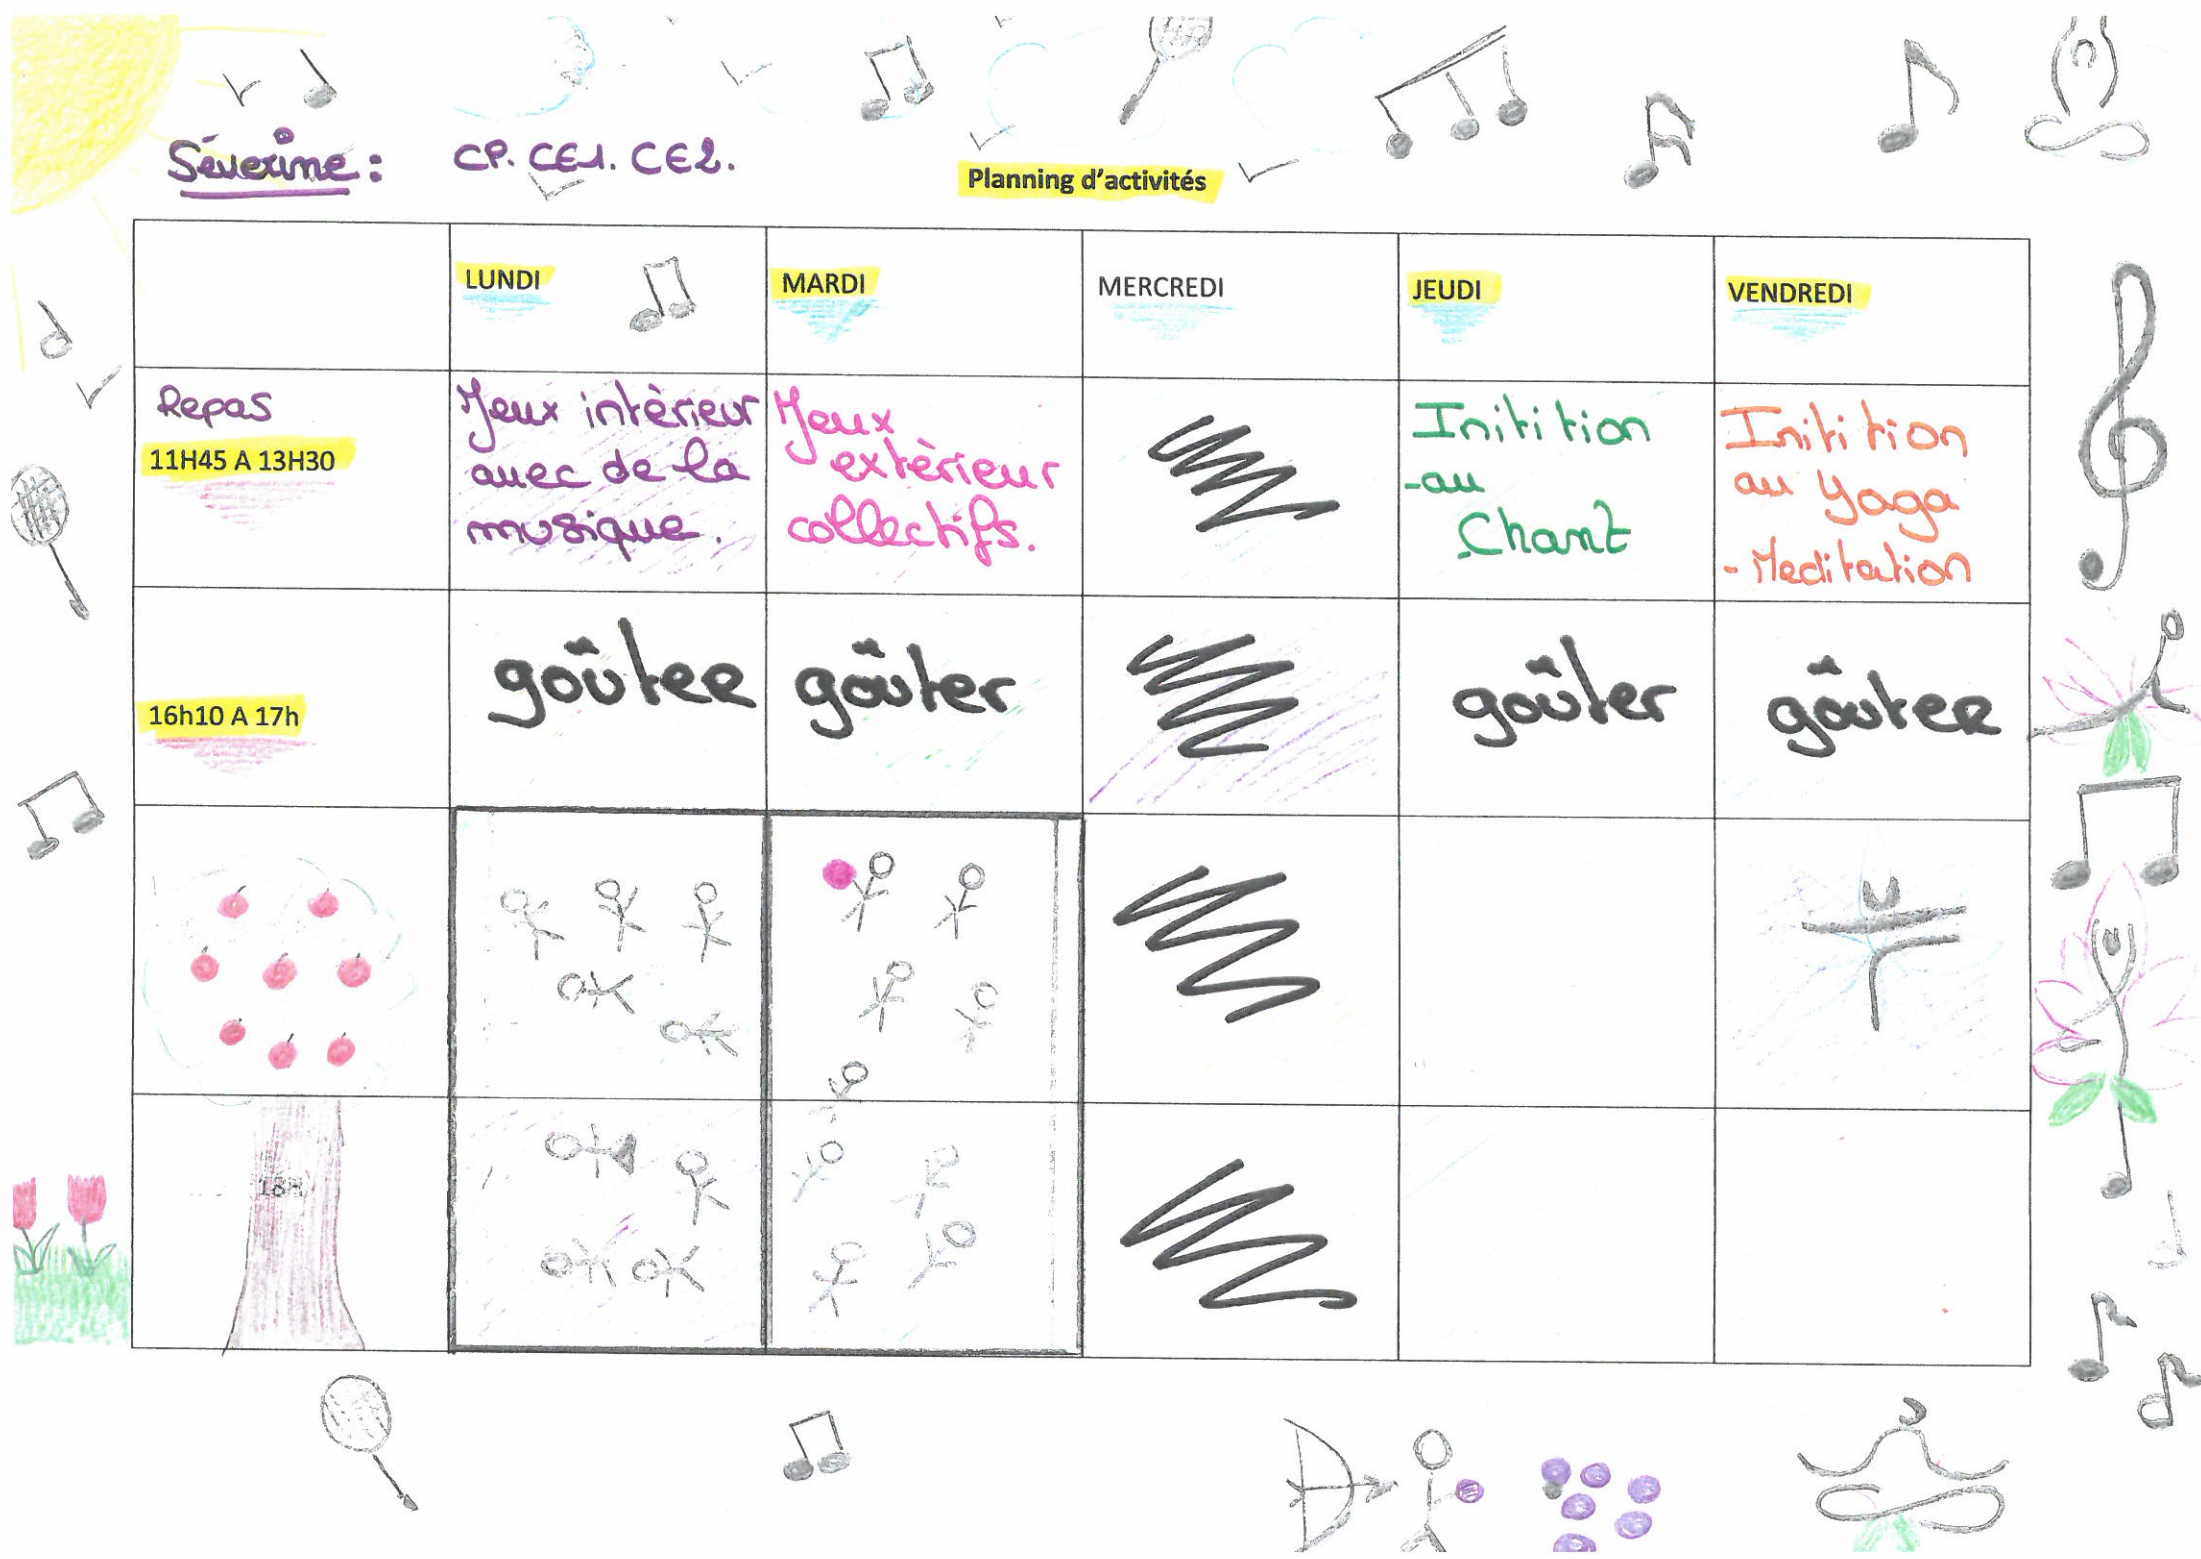 Séverine : CP. CE1. CE2.
Planning d'activités
LUNDI MARDI MERCREDI JEUDI VENDREDI
Repas
11H45 A 13H30
Jeux intèrieur
avec de la
musique.
Jeux
extèrieur
collectifs.
Initition
-au
Chant
Initition
au Yoga
- Meditation
16h10 A 17h
goûter goûter goûter goûter
18H